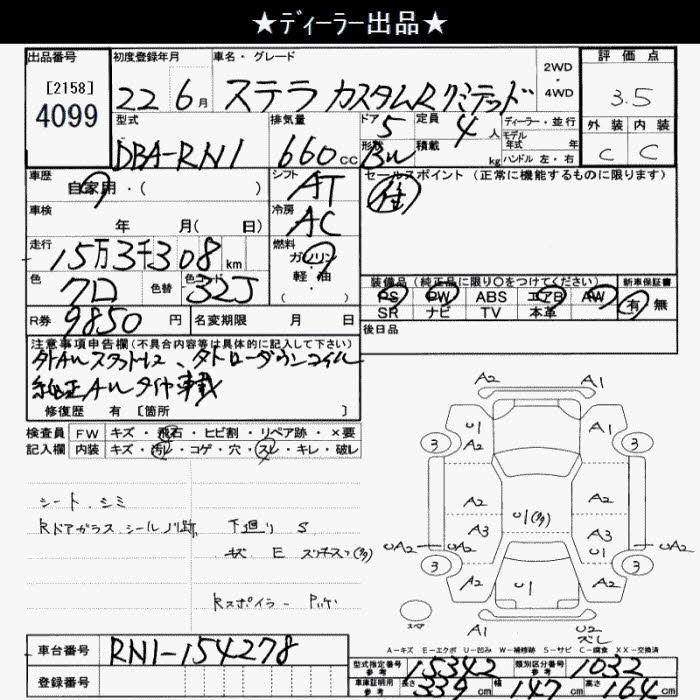 ★ディーラー出品★
出品番号 初度登録年月 車名・グレード 2WD・4WD 評価点
[2158] 4099 22 6月 ステラ カスタムRリミテッド 3.5
型式 排気量 ドア 定員 ディーラー・並行 外装 内装
DBA-RN1 660cc 5 4人 モデル年式 年 C C
形状 積載 kg ハンドル 左・右
車歴 シフト セールスポイント(正常に機能するものに限ります)
自家用・( ) AT
車検 冷房
年 月( 日) AC
走行 燃料
15万3千308km ガソリン・軽・油・( )
色 色替 色コード 装備品(純正品に限り○をつけてください) 新車保証書
クロ 32J PS PW ABS エアB AW 有 無
SR ナビ TV 本革
R券 9850円 名変期限 月 日 後日品
注意事項申告欄(不具合内容等は具体的に記入して下さい)
外AWスタットレス、タトローダウンコイル
純正AWタイヤ車載
修復歴 有 [箇所 ]
検査員記入欄 FW キズ・飛石・ヒビ割・リペア跡・×要
内装 キズ・汚レ・コゲ・穴・スレ・キレ・破レ
シート シミ
RドアガラスシールノリR跡 下廻り S
キズ E スリキズ(多)
Rスポイラー
A2 A1
U1 A1
3 A2 3
A2 A2
U1(多)
A3 A3
UA2 UA2 U1 UA2
3 3
A2 U1 A2
スペア
A1 U2
ズレ
A-キズ E-エクボ U-凹み W-補修跡 S-サビ C-腐食 XX-交換済
車台番号 RN1-154278
登録番号
型式指定番号 参考 15342 類別区分番号 参考 1032
車庫証明用 参考 長さ 339cm 幅 147cm 高さ 164cm